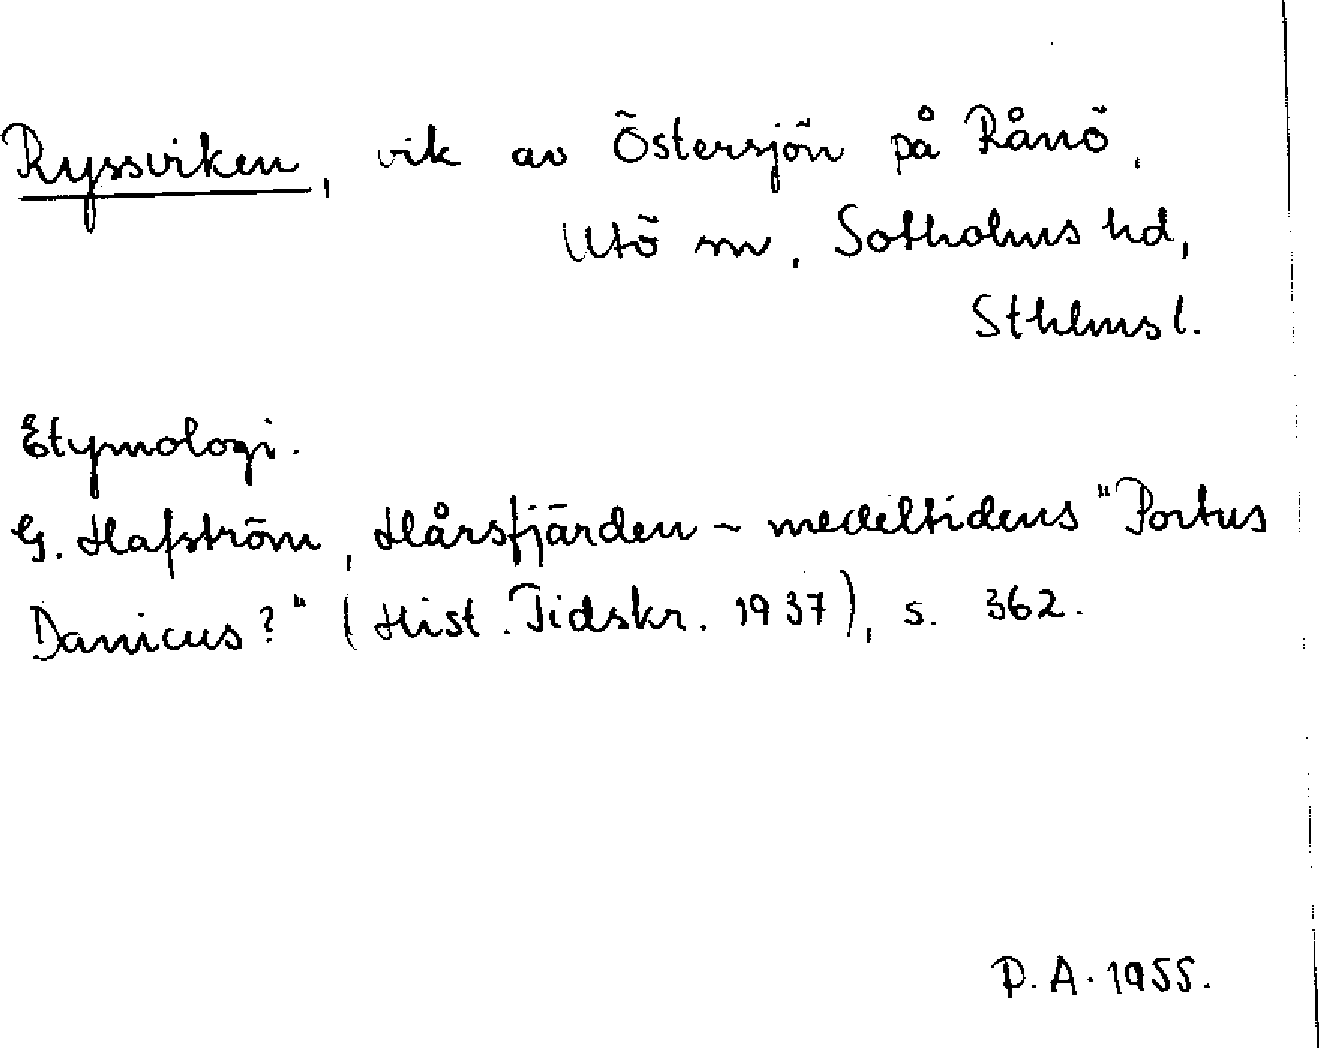 Ryssviken, vik av Östersjön på Rånö,
Utö sn, Sotholms hd,
Sthlms l.
Etymologi.
G. Hafström, Hårsfjärden – medeltidens "Portus
Danicus?" (Hist. Tidskr. 1937), s. 362.
P. A. 1955.